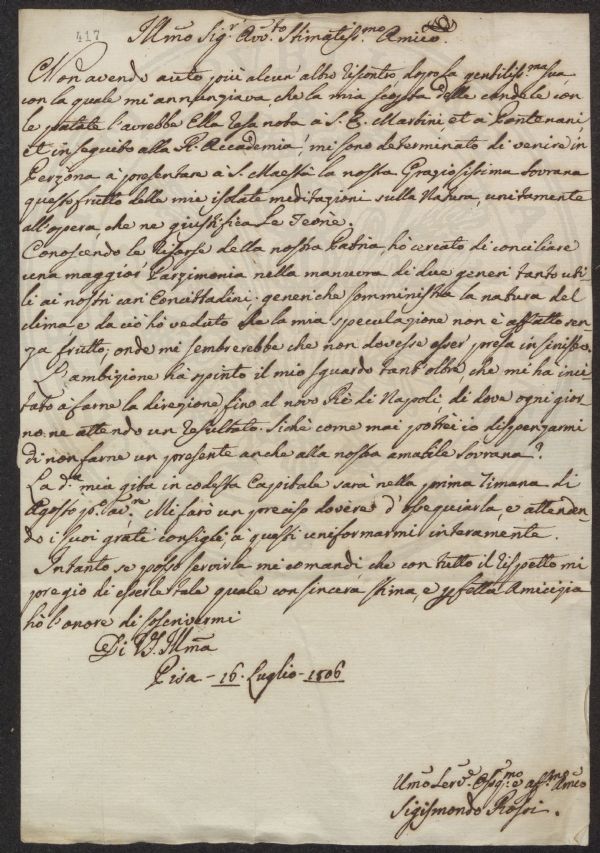 417
Illmo Sigr Avvto Stimatissmo Amico
Non avendo auto più alcun'altro riscontro dopo la gentilissma sua,
con la quale mi annunziava che la mia scopta delle candele con
le patate l'avrebbe Ella resa nota a S. E. Martini et a Pontenani,
et in seguito alla R. Accademia, mi sono determinato di venire in
Perzona a presentare a S. Maestà la nostra Graziosissima Sovrana
questo frutto delle mie isolate meditazioni sulla Natura, unitamente
all'opera che ne giustifica Le Teorìe.
Conoscendo le risorse della nostra Patria, hò cercato di conciliare
una maggior Parzimonia nella manuvra di due generi tanto uti-
li ai nostri cari Concittadini; generi che somministra la natura del
clima e da ciò hò veduto che la mia speculazione non è affatto sen-
za frutto; onde mi sembrerebbe che non dovesse esser presa in sinistro.
L'ambizione hà spinto il mio sguardo tant'oltre, che mi ha inci-
tato a farne la direzione fino al novo Rè di Napoli, di dove ogni gior-
no ne attendo un resultato. Sichè come mai potrei io dispenzarmi
di non farne un presente anche alla nostra amabile Sovrana?
La da mia gita in codesta Capitale sarà nella prima timana di
Agosto Mi farò un preciso dovere d'ossequiarla, e attenden-
do i suoi grati consigli, a questi uniformarmi interamente.
Intanto se posso servirla mi comandi che con tutto il rispetto mi
pregio di esserle tale quale con sincera stima, e pfetta Amicizia
hò l'onore di soscrivermi
Di VS. Illma
Pisa - 16. Luglio - 1806
Umo Serve Obbgmo e affmo Amico
Sigismondo Rossi.